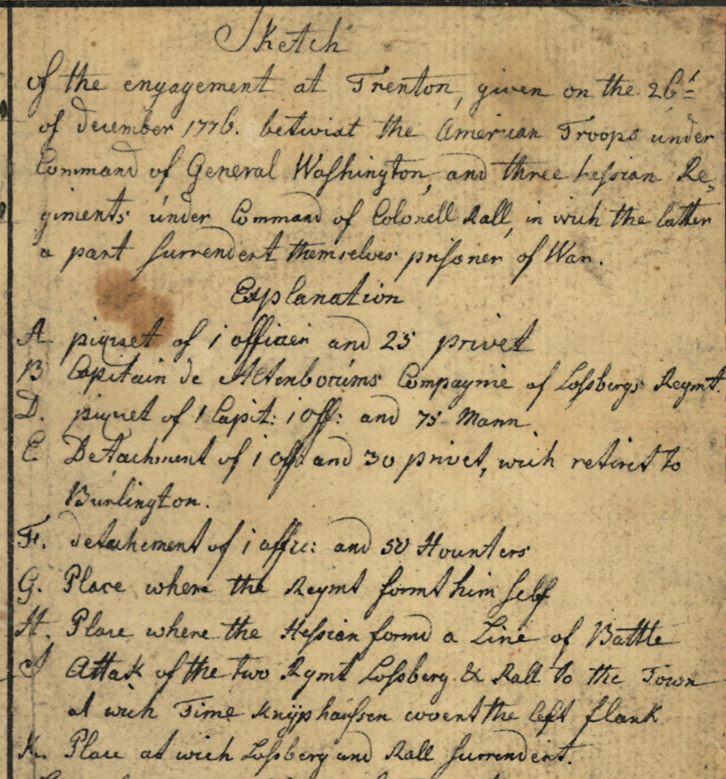 Sketch
of the engagement at Trenton, given on the 26th
of december 1776. betwixt the American Troops under
Command of General Washington, and three hessian Re,
giments under Command of Colonell Rall, in wich the latter
a part surrendert themselves prisoner of War.
Explanation
A piquet of 1 officier and 25 privet
B Capitain de Altenbocums Compagnie of Lossbergs Reymt.
D. piquet of 1 Capit: 1 off: and 75 Mann
E Detachment of 1 off: and 30 privet, wich retiret to
Burlington.
F. detachement of 1 offic: and 50 Hounters
G. Place where the Reymt formt him self
H. Place where the Hessian formd a Line of Battle
J Attak of the two Rgmt Lossberg & Rall to the Town
at wich Time Knÿphaussen covent the left flank
K. Place at wich Lossberg and Rall surrendert.